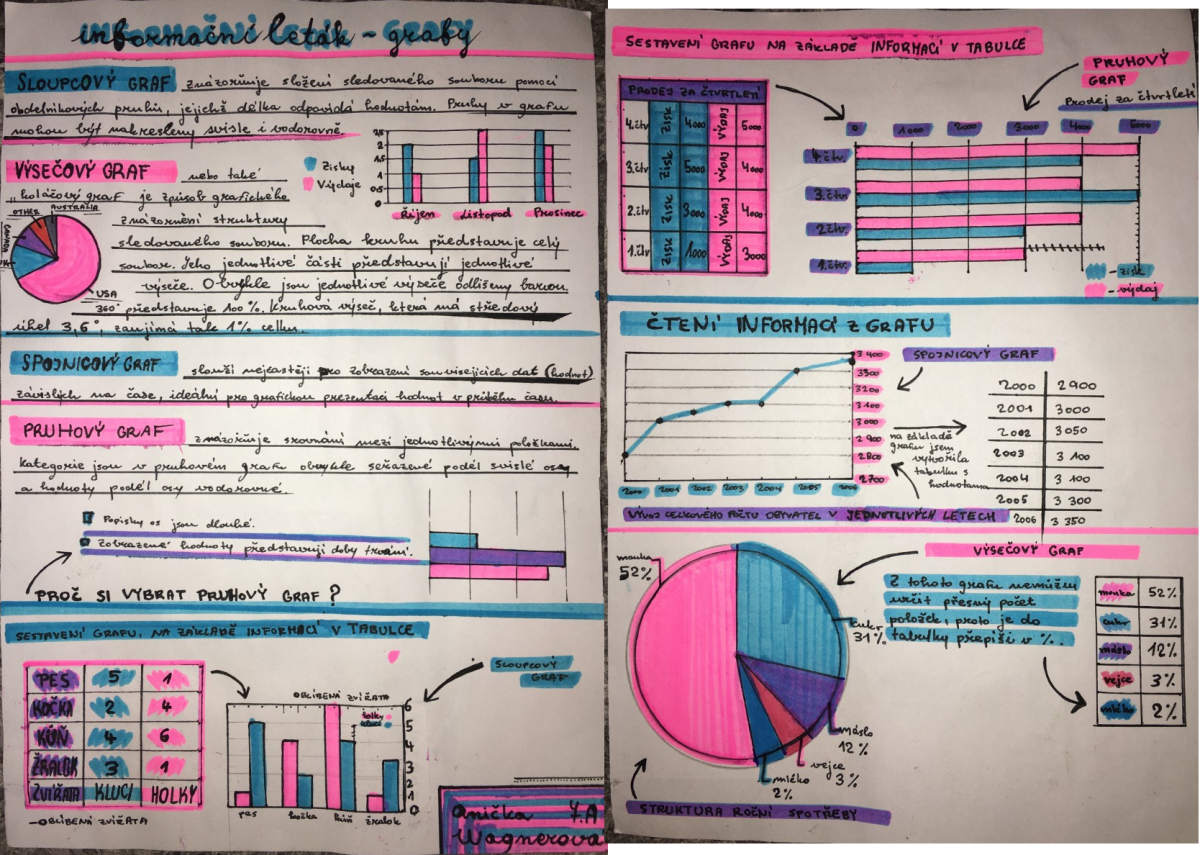 informační leták - grafy
SLOUPCOVÝ GRAF znázorňuje složení sledovaného souboru pomocí
obdelníkových pruhů, jejichž délka odpovídá hodnotám. Pruhy v grafu
mohou být nakresleny svisle i vodorovně.
2,5
2
1,5
1
0,5
0
Zisky
Výdaje
Říjen Listopad Prosinec
VÝSEČOVÝ GRAF nebo také
"koláčový graf je způsob grafického
znázornění struktury
sledovaného souboru. Plocha kruhu představuje celý
soubor. Jeho jednotlivé části představují jednotlivé
výseče. Obvykle jsou jednotlivé výseče odlišeny barvou.
360° představuje 100%. Kruhová výseč, která má středový
úhel 3,6°, zaujímá tak 1% celku.
OTHER
AUSTRALIA
USA
SPOJNICOVÝ GRAF slouží nejčastěji pro zobrazení souvisejících dat (hodnot)
závislých na čase, ideální pro grafickou prezentaci hodnot v průběhu času.
PRUHOVÝ GRAF znázorňuje srovnání mezi jednotlivými položkami.
Kategorie jsou v pruhovém grafu obvykle seřazené podél svislé osy
a hodnoty podél osy vodorovné.
Popisky os jsou dlouhé.
Zobrazené hodnoty představují doby trvání.
PROČ SI VYBRAT PRUHOVÝ GRAF?
SESTAVENÍ GRAFU NA ZÁKLADĚ INFORMACÍ V TABULCE
PES 5 1
KOČKA 2 4
KŮŇ 4 6
ŽRALOK 3 1
ZVÍŘATA KLUCI HOLKY
-OBLÍBENÁ ZVÍŘATA
SLOUPCOVÝ
GRAF
OBLÍBENÁ ZVÍŘATA
holky
kluci
6
5
4
3
2
1
0
pes kočka kůň žralok
Anička 7.A
Wagnerová
SESTAVENÍ GRAFU NA ZÁKLADĚ INFORMACÍ V TABULCE
PRODEJ ZA ČTVRTLETÍ
4.čtv ZISK 4000 VÝDAJ 5000
3.čtv ZISK 5000 VÝDAJ 4000
2.čtv ZISK 3000 VÝDAJ 4000
1.čtv ZISK 1000 VÝDAJ 3000
PRUHOVÝ
GRAF
Prodej za čtvrtletí
0 1000 2000 3000 4000 5000
4.čtv.
3.čtv
2.čtv
1.čtv.
- zisk
- výdaj
ČTENÍ INFORMACÍ Z GRAFU
SPOJNICOVÝ GRAF
3 400
3300
3200
3 100
3 000
2 900
2800
2700
2000 2001 2002 2003 2004 2005 2006
VÝVOJ CELKOVÉHO POČTU OBYVATEL V JEDNOTLIVÝCH LETECH
na základě
grafu jsem
vytvořila
tabulku s
hodnotama
2000 2900
2001 3000
2002 3050
2003 3 100
2004 3 100
2005 3 300
2006 3 350
VÝSEČOVÝ GRAF
mouka
52%
cukr
31%
máslo
12%
vejce
3%
mléko
2%
Z tohoto grafu nemůžu
určit přesný počet
položek, proto je do
tabulky přepíši v %.
mouka 52%
cukr 31%
máslo 12%
vejce 3%
mléko 2%
STRUKTURA ROČNÍ SPOTŘEBY